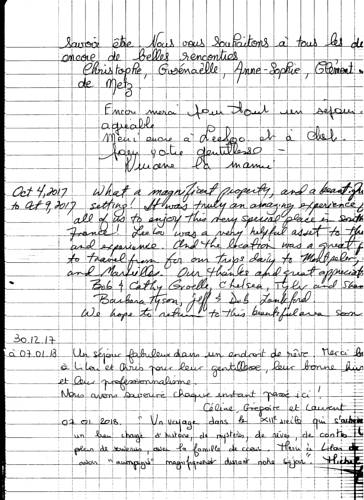 savoir être Nous vous souhaitons à tous les de
encore de belles rencontres
Christophe, Gwénaëlle, Anne-Sophie, Clément
de Metz.
Encore merci pour tout un séjour
agréable
Merci encore à et à
pour votre gentillesse -
la mamie
Oct 4, 2017 What a magnificent property, and a beautiful
to Oct 9, 2017 setting! It was truly an amazing experience f
all of us to enjoy this very special place in south
France! was a very helpful asset to th
and experience. And the location was a great p
to travel from for our trips daily to Montpelier,
and Marseilles. Our thanks and great apprecia
Bob & Cathy Groelle, Chelsea, Tyler and Sha
Barbara Tyson, Jeff & Deb Lankford
We hope to return to this beautiful area soon
30.12.17
à 07.01.18 Un séjour fabuleux dans un endroit de rêve. Merci b
à Lilou et Chris pour leur gentillesse, leur bonne hu
et leur professionnalisme.
Nous avons savouré chaque instant passé ici !
Céline, Grégoire et Laurent
07 01 2018. "Un voyage dans le XIIe siècle qui s'
un lieu chargé d'histoire, de mystères, de rêves, de contes
plein de souvenirs, avec la famille de cœur. Merci à Lilou de
avoir "accompagné" magnifiquement durant notre séjour". Miche